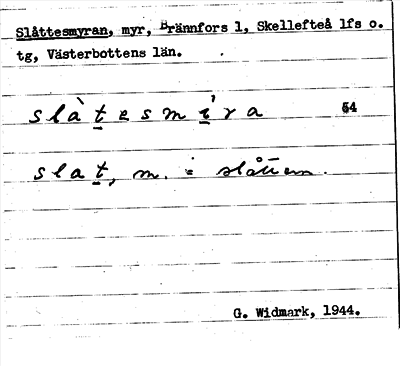 Slåttesmyran, myr, Brännfors 1, Skellefteå lfs o.
tg, Västerbottens län.
slàtesmíra 54
slat, m. = slåtten.
G. Widmark, 1944.